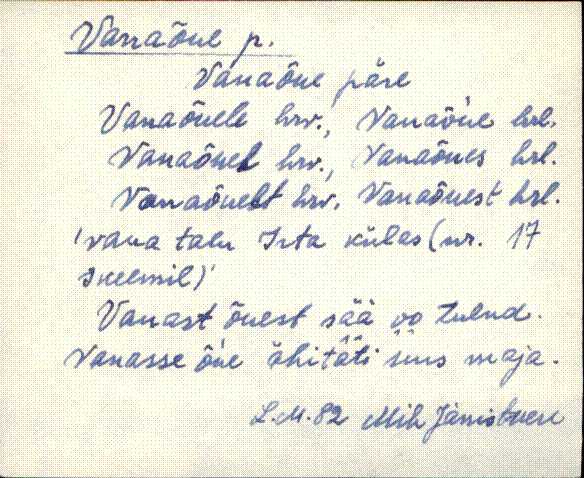 Vanaõue p.
Vanaõue päre
Vanaõuele hrv., Vanaõúe hrl.
Vanaõuel hrv., Vanaõues hrl.
Vanaõuelt hrv. Vanaõuest hrl.
'vana talu Irta külas (nr. 17
skeemil)'
Vanast õuest sää oo tulnd.
Vanasse õúe ähitäti suus maja.
L.M. 82 Mih Jämistveri